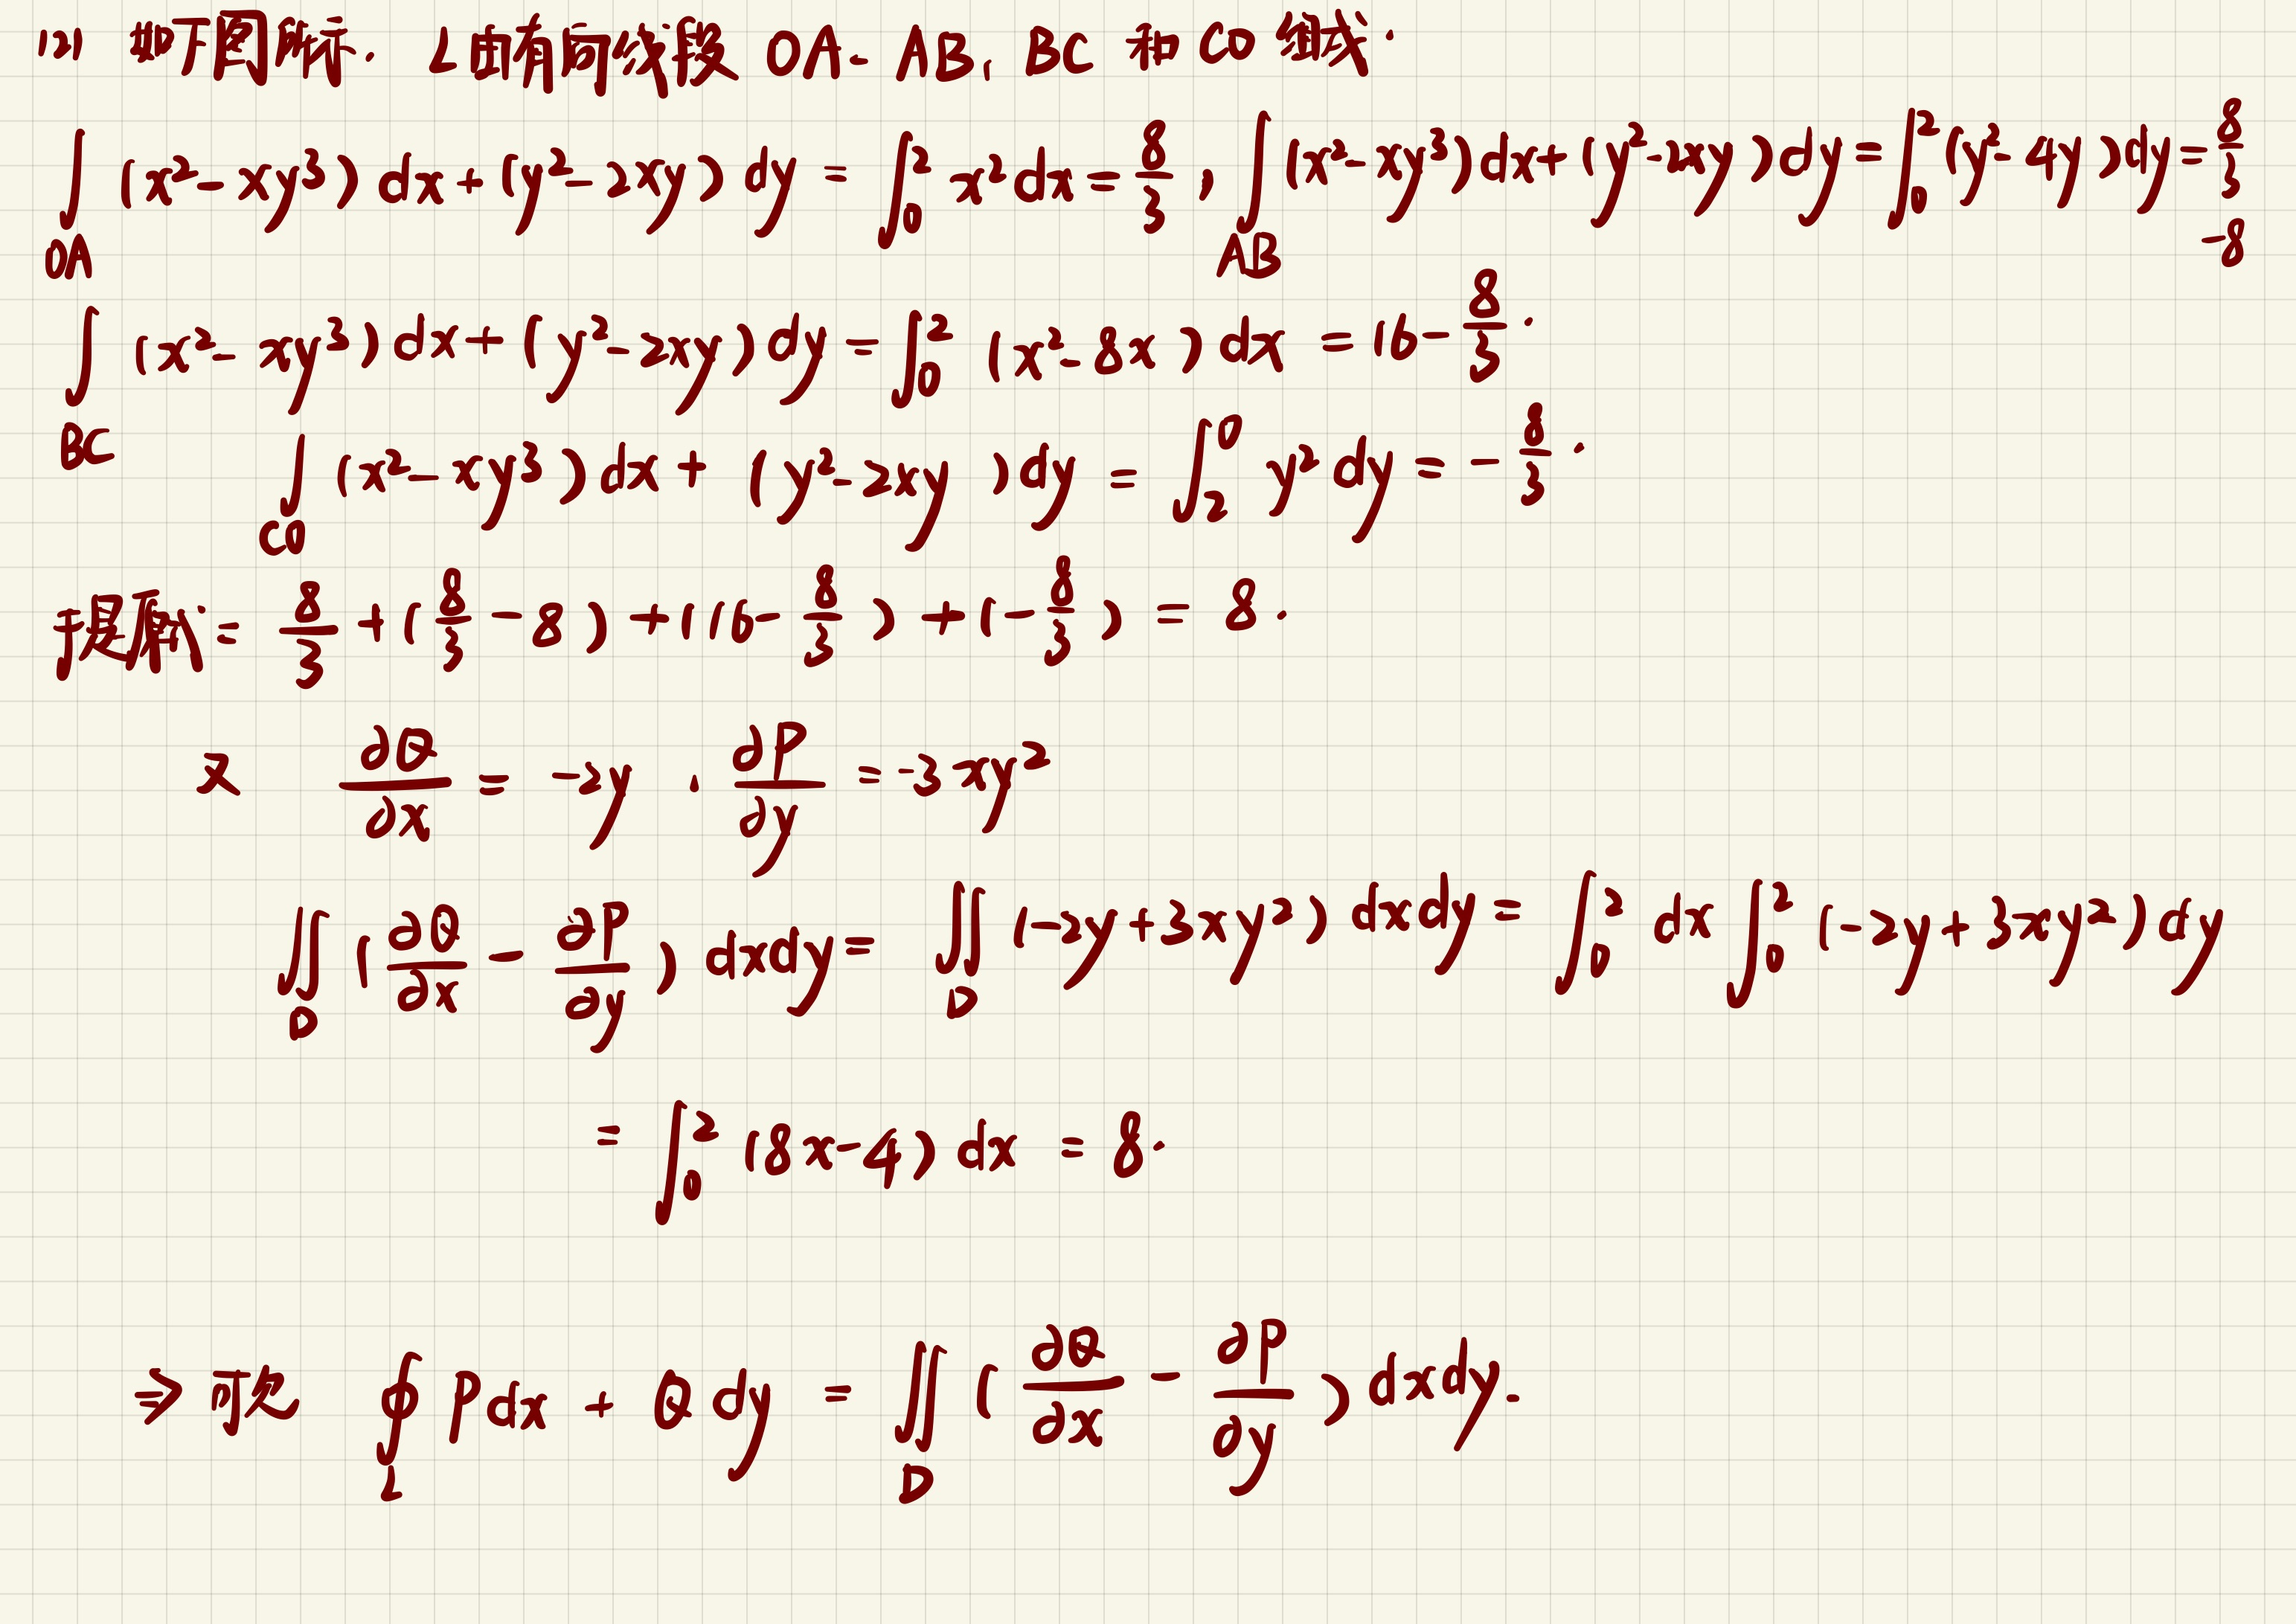 (2) 如下图所示. L由有向线段 OA、AB、BC 和 CO 组成.
∫_{OA} (x²-xy³) dx+(y²-2xy) dy = ∫_0^2 x² dx = 8/3, ∫_{AB} (x²-xy³) dx+(y²-2xy) dy = ∫_0^2 (y²-4y) dy = 8/3 -8
∫_{BC} (x²-xy³) dx+(y²-2xy) dy = ∫_0^2 (x²-8x) dx = 16-8/3.
∫_{CO} (x²-xy³) dx + (y²-2xy) dy = ∫_2^0 y² dy = -8/3.
= 8/3 +(8/3 -8) +(16-8/3) +(-8/3) = 8.
又 ∂Q/∂x = -2y, ∂P/∂y = -3xy²
∬_D (∂Q/∂x - ∂P/∂y) dxdy = ∬_D (-2y+3xy²) dxdy = ∫_0^2 dx ∫_0^2 (-2y+3xy²) dy
= ∫_0^2 (8x-4) dx = 8.
⇒ 可知 ∮_L P dx + Q dy = ∬_D (∂Q/∂x - ∂P/∂y) dxdy.